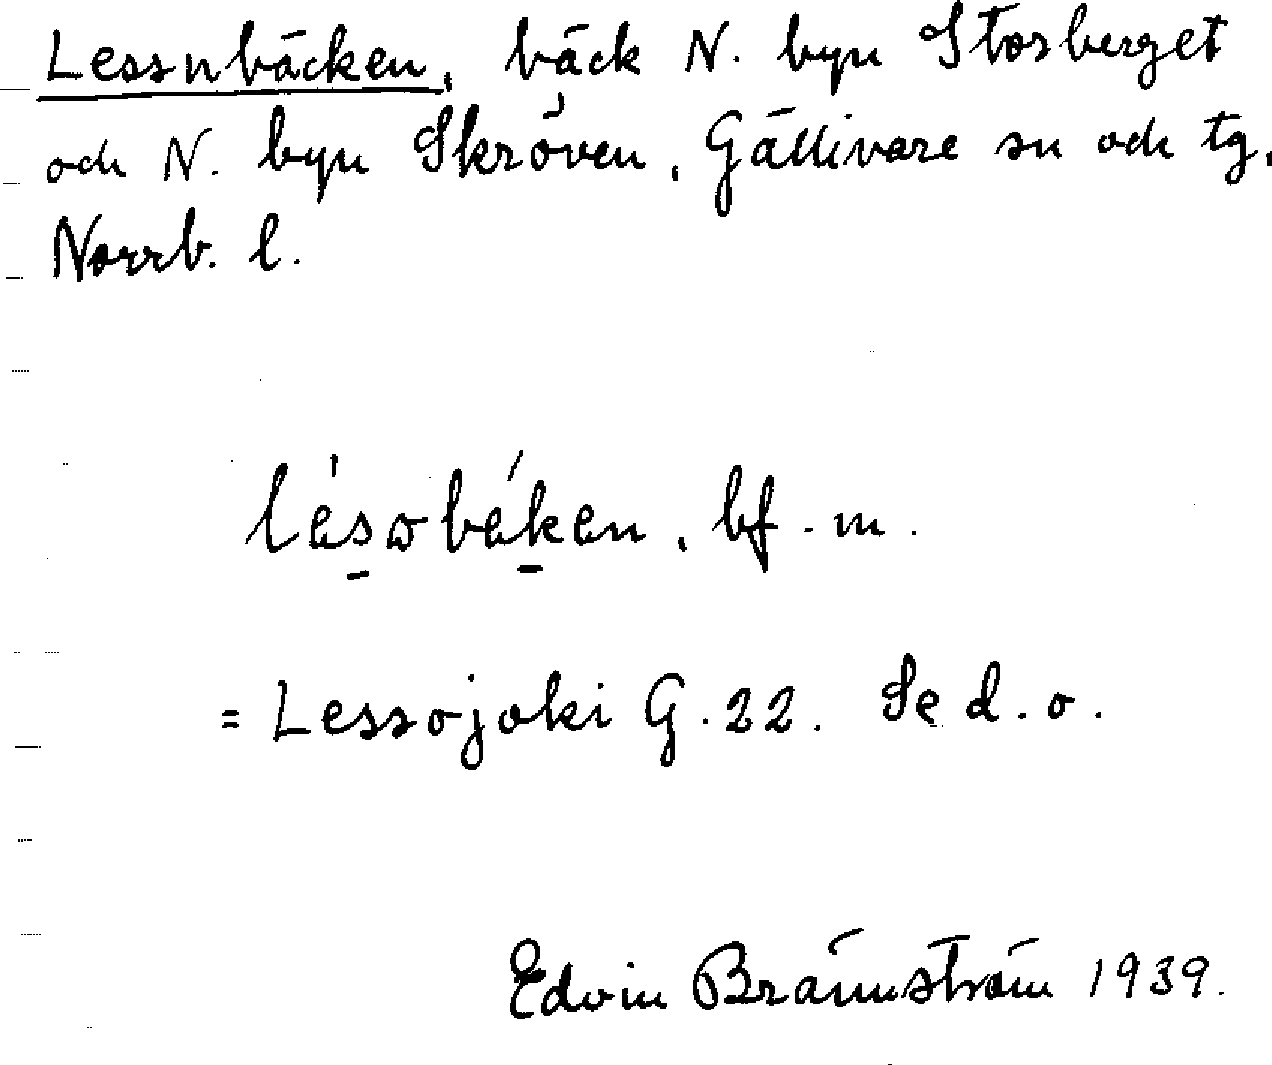 Lessnbäcken, bäck N. byn Storberget
och N. byn Skröven, Gällivare sn och tg,
Norrb. l.
bf. m.
= Lessojoki G. 22. Se d. o.
Edvin Brännström 1939.